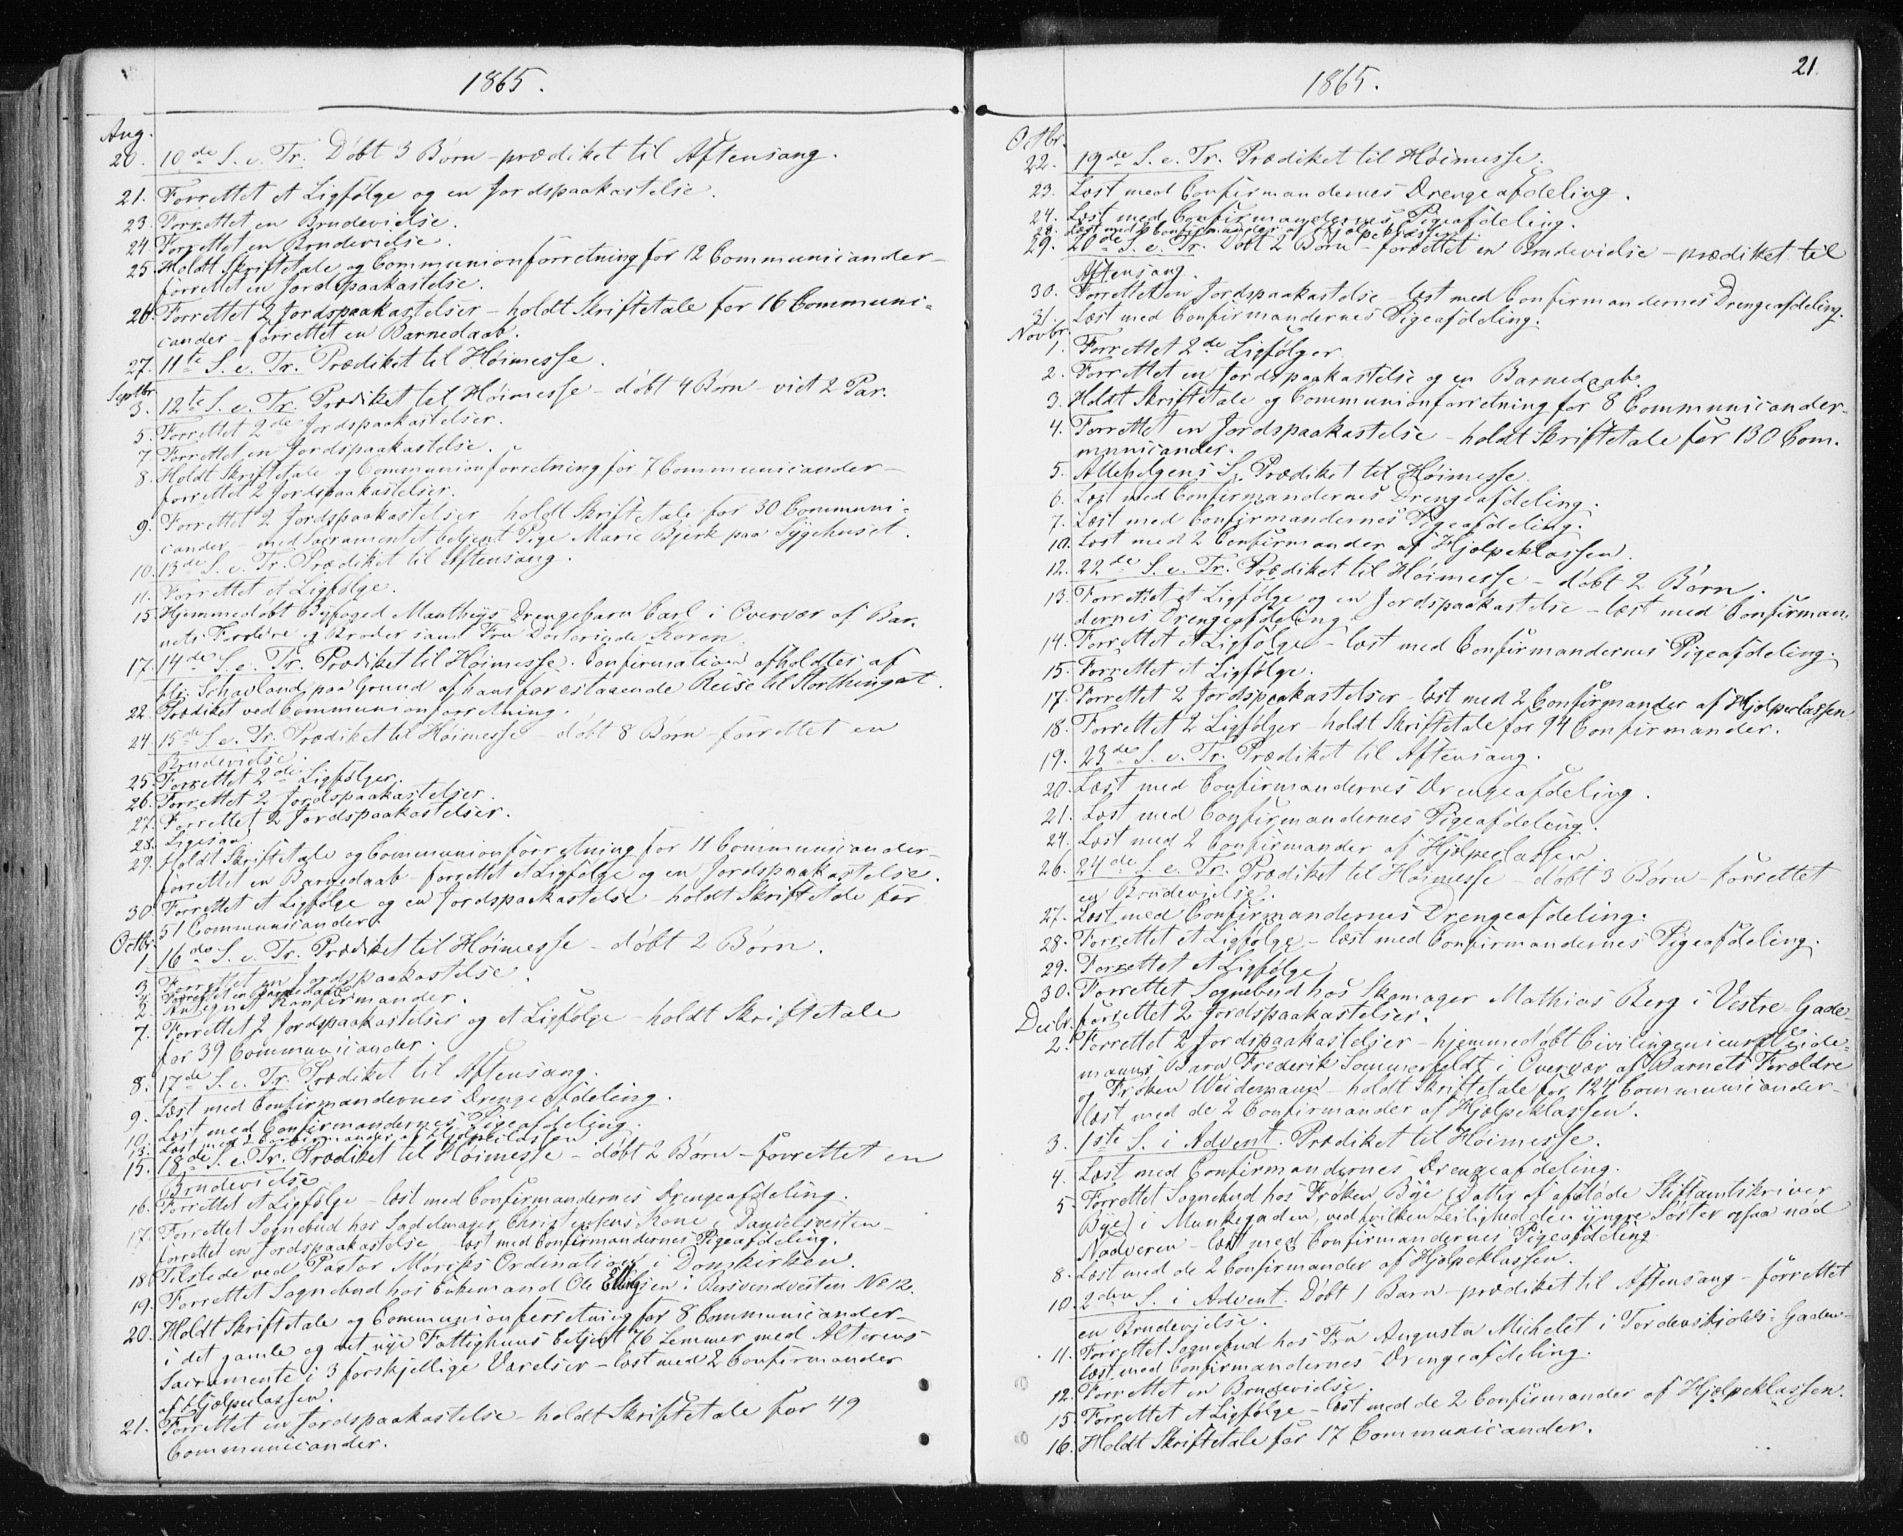 1865.
Aug.
20. 10de S. e. Tr. Döbt 3 Börn - prædiket til Aftensang.
21. Forrettet et Ligfølge og en Jordspaakastelse.
23. Forrettet en Brudevielse.
24. Forrettet en Brudevielse.
25. Holdt Skriftetale og Communionforretning for 12 Communicander -
forrettet en Jordspaakastelse.
26. Forrettet 2 Jordspaakastelser - holdt Skriftetale for 16 Communi-
cander - forrettet en Barnedaab.
27. 11te S. e. Tr. Prædiket til Höimesse.
Septbr.
3. 12te S. e. Tr. Prædiket til Höimesse - döbt 4 Börn - viet 2 Par.
5. Forrettet 2de Jordspaakastelser.
7. Forrettet en Jordspaakastelse.
8. Holdt Skriftetale og Communionforretning for 7 Communicander -
forrettet 2 Jordspaakastelser.
9. Forrettet 2 Jordspaakastelser - holdt Skriftetale for 30 Communi-
cander - med Sacramentet betjent Pige Marie Bjerk paa Sygehuset.
10. 13de S. e. Tr. Prædiket til Aftensang.
11. Forrettet et Ligfølge.
15. Hjemmedöbt Byfoged Mantheys Drengebarn Carl i Overvær af Bar-
nets Forældre og Broder samt Fru Doctorinde Koren.
17. 14de S. e. Tr. Prædiket til Höimesse. Confirmation afholdtes af
Hr. Schavland paa Grund af hans forestaaende Reise til Storthinget.
22. Prædiket ved Communionforretning.
24. 15de S. e. Tr. Prædiket til Höimesse - döbt 8 Börn - forrettet en
Brudevielse.
25. Forrettet 2de Ligfølger.
26. Forrettet 2 Jordspaakastelser.
27. Forrettet 2 Jordspaakastelser.
28. Ligesaa
29. Holdt Skriftetale og Communionforretning for 11 Communicander -
forrettet en Barnedaab - forrettet et Ligfølge og en Jordspaakastelse.
30. Forrettet et Ligfølge og en Jordspaakastelse - holdt Skriftetale for
51 Communicander.
Octbr.
1. 16de S. e. Tr. Prædiket til Höimesse - döbt 2 Börn.
3. Forrettet en Jordspaakastelse.
4. Forrettet en Barnedaab.
2. Antegnet Konfirmander.
7. Forrettet 2 Jordspaakastelser og et Ligfølge - holdt Skriftetale
for 39 Communicander.
8. 17de S. e. Tr. Prædiket til Aftensang.
9. Læst med Confirmandernes Drengeafdeling.
10. Læst med Confirmandernes Pigeafdeling.
13. Læst med 2 Confirmander af Hjelpeclassen
15. 18de S. e. Tr. Prædiket til Höimesse - döbt 2 Börn - forrettet en
Brudevielse
16. Forrettet et Ligfølge - læst med Confirmandernes Drengeafdeling.
17. Forrettet Sognebud hos Sadelmager Christensens Kone i Danielsveiten -
forrettet en Jordspaakastelse - læst med Confirmandernes Pigeafdeling.
18. Tilstede ved Pastor Ordination i Domkirken.
19. Forrettet Sognebud hos Enkemand Ole Ellingsen i No 12.
20. Holdt Skriftetale og Communionforretning for 8 Communicander -
i det gamle og det nye Fattighuus betjent 76 Lemmer med Alterens
Sacramente i 3 forskjellige Værelser - læst med 2 Confirmander
af Hjelpeclassen.
21. Forrettet en Jordspaakastelse - holdt Skriftetale for 49
Communicander.
1865.
21.
Octbr.
22. 19de S. e. Tr. Prædiket til Höimesse.
23. Læst med Confirmandernes Drengeafdeling.
24. Læst med Confirmandernes Pigeafdeling.
28. Læst med 2 Confirmander af Hjelpeclassen.
29. 20de S. e. Tr. Döbt 2 Börn - forrettet en Brudevielse - prædiket til
Aftensang.
30. Forrettet en Jordspaakastelse - læst med Confirmandernes Drengeafdeling.
31. Læst med Confirmandernes Pigeafdeling.
Novbr.
1. Forrettet 2de Ligfølger
2. Forrettet en Jordspaakastelse og en Barnedaab.
3. Holdt Skriftetale og Communionforretning for 8 Communicander.
4. Forrettet en Jordspaakastelse - holdt Skriftetale for 130 Com-
municander.
5. Allehelgens S. Prædiket til Höimesse.
6. Læst med Confirmandernes Drengeafdeling.
7. Læst med Confirmandernes Pigeafdeling.
10. Læst med 2 Confirmander af Hjelpeklassen.
12. 22de S. e. Tr. Prædiket til Höimesse - döbt 2 Börn.
13. Forrettet et Ligfølge og en Jordspaakastelse - læst med Confirman-
dernes Drengeafdeling.
14. Forrettet et Ligfølge - læst med Confirmandernes Pigeafdeling.
15. Forrettet et Ligfølge.
17. Forrettet 2 Jordspaakastelser - læst med 2 Confirmander af Hjelpeclassen
18. Forrettet 2 Ligfølger - holdt Skriftetale for 94 Confirmander.
19. 23de S. e. Tr. Prædiket til Aftensang.
20. Læst med Confirmandernes Drengeafdeling.
21. Læst med Confirmandernes Pigeafdeling.
24. Læst med 2 Confirmander af Hjelpeclassen
26. 24de S. e. Tr. Prædiket til Höimesse - döbt 3 Börn - forrettet
en Brudevielse.
27. Læst med Confirmandernes Drengeafdeling.
28. Forrettet et Ligfølge - læst med Confirmandernes Pigeafdeling.
29. Forrettet et Ligfølge
30. Forrettet Sognebud hos Skomager Mathias Berg i Vestre-Gade -
forrettet 2 Jordspaakastelser.
Decbr.
2. Forrettet 2 Jordspaakastelser - hjemmedöbt Civilingenieur Weide-
manns Barn Frederik Sommerfeldt i Overvær af Barnets Forældre
og Fröken Weidemann - holdt Skriftetale for 124 Communicander -
læst med de 2 Confirmander af Hjelpeklassen.
3. 1ste S. i Advent. Prædiket til Höimesse.
4. Læst med Confirmandernes Drengeafdeling.
5. Forrettet Sognebud hos Fröken Bye (Datter af afdöde Stiftamtskriver
Bye) i Munkegaden, ved hvilken Leilighed den yngre Söster ogsaa nöd
Nadveren - læst med Confirmandernes Pigeafdeling
8. Læst med de 2 Confirmander af Hjelpeklassen.
10. 2den S. i Advent. Döbt 1 Barn - prædiket til Aftensang - forrettet
en Brudevielse.
11. Forrettet Sognebud hos Fru Augusta Michelet i Tordenskjolds-Gaden -
læst med Confirmandernes Drengeafdeling.
12. Forrettet en Brudevielse.
15. Forrettet et Ligfølge - læst med de 2 Confirmander af Hjelpeklassen.
16. Holdt Skriftetale for 17 Communicander.